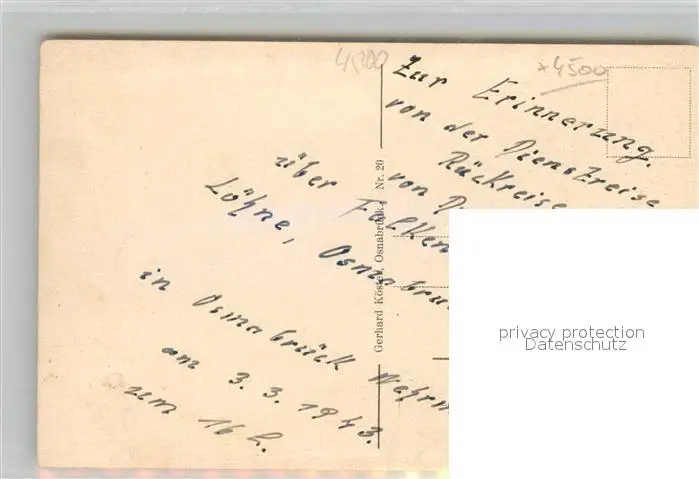 4500
x4500
Zur Erinnerung.
von der Dienstreise
von D
Rückreise
über Falken
Löhne, Osnabrü
in Osnabrück Wehrm
am 3.3.1943.
um 16 h.
Gerhard Köster, Osnabrück. Nr. 20
privacy protection
Datenschutz